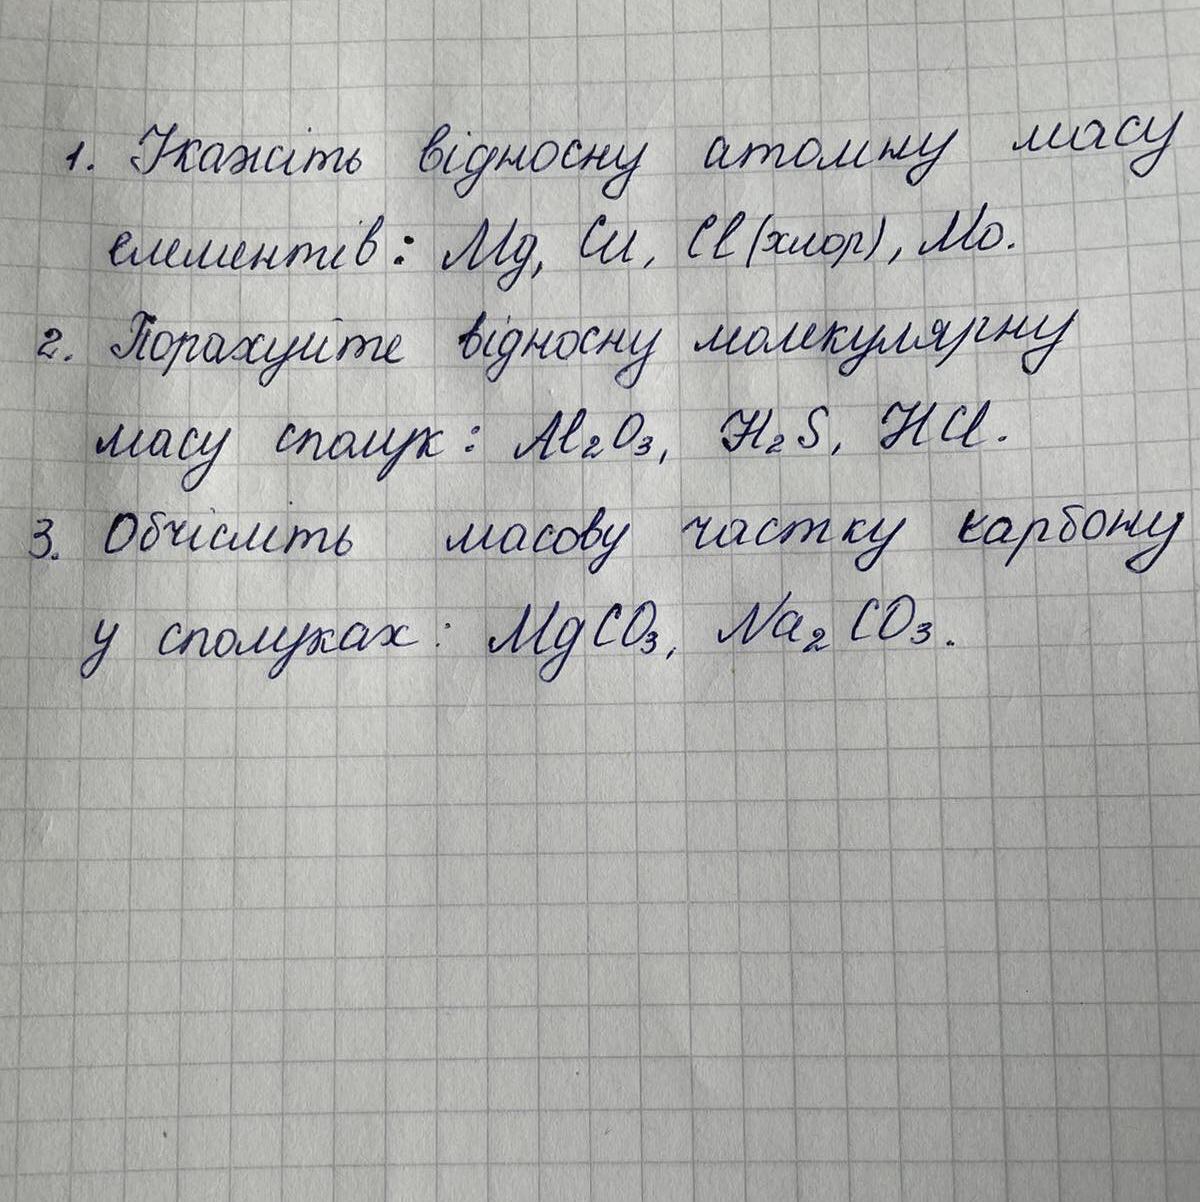 1. Укажіть відносну атомну масу
елементів: Mg, Cu, Cl (хлор), Mo.
2. Порахуйте відносну молекулярну
масу сполук: Al₂O₃, H₂S, HCl.
3. Обчісліть масову частку карбону
у сполуках: MgCO₃, Na₂CO₃.